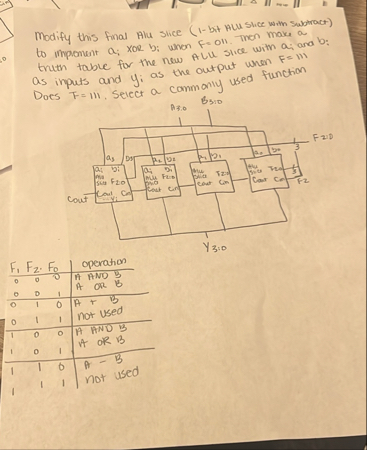 Modify this final Alu Slice (1-bit ALU Slice with Subtract)
to implement ai XOR bi when F=011. Then make a
truth table for the new ALU slice with ai and bi
as inputs and yi as the output when F=111
Does F=111. Select a commonly used function
A3:0 B3:0
F2:0
a3 b3 a2 b2 a1 b1 a0 b0
ai bi ai bi Alu Alu
Alu ALU
Slice F2:0 Slice F2:0 Slice F2:0 Slice
Cout Cin Cout Cin Cout Cin Cout Cin F2
Cout
Y3:0
F1 F2. F0 operation
0 0 0 A AND B
0 0 1 A OR B
0 1 0 A + B
0 1 1 not used
1 0 0 A AND B
1 0 1 A OR B
1 1 0 A - B
1 1 1 not used